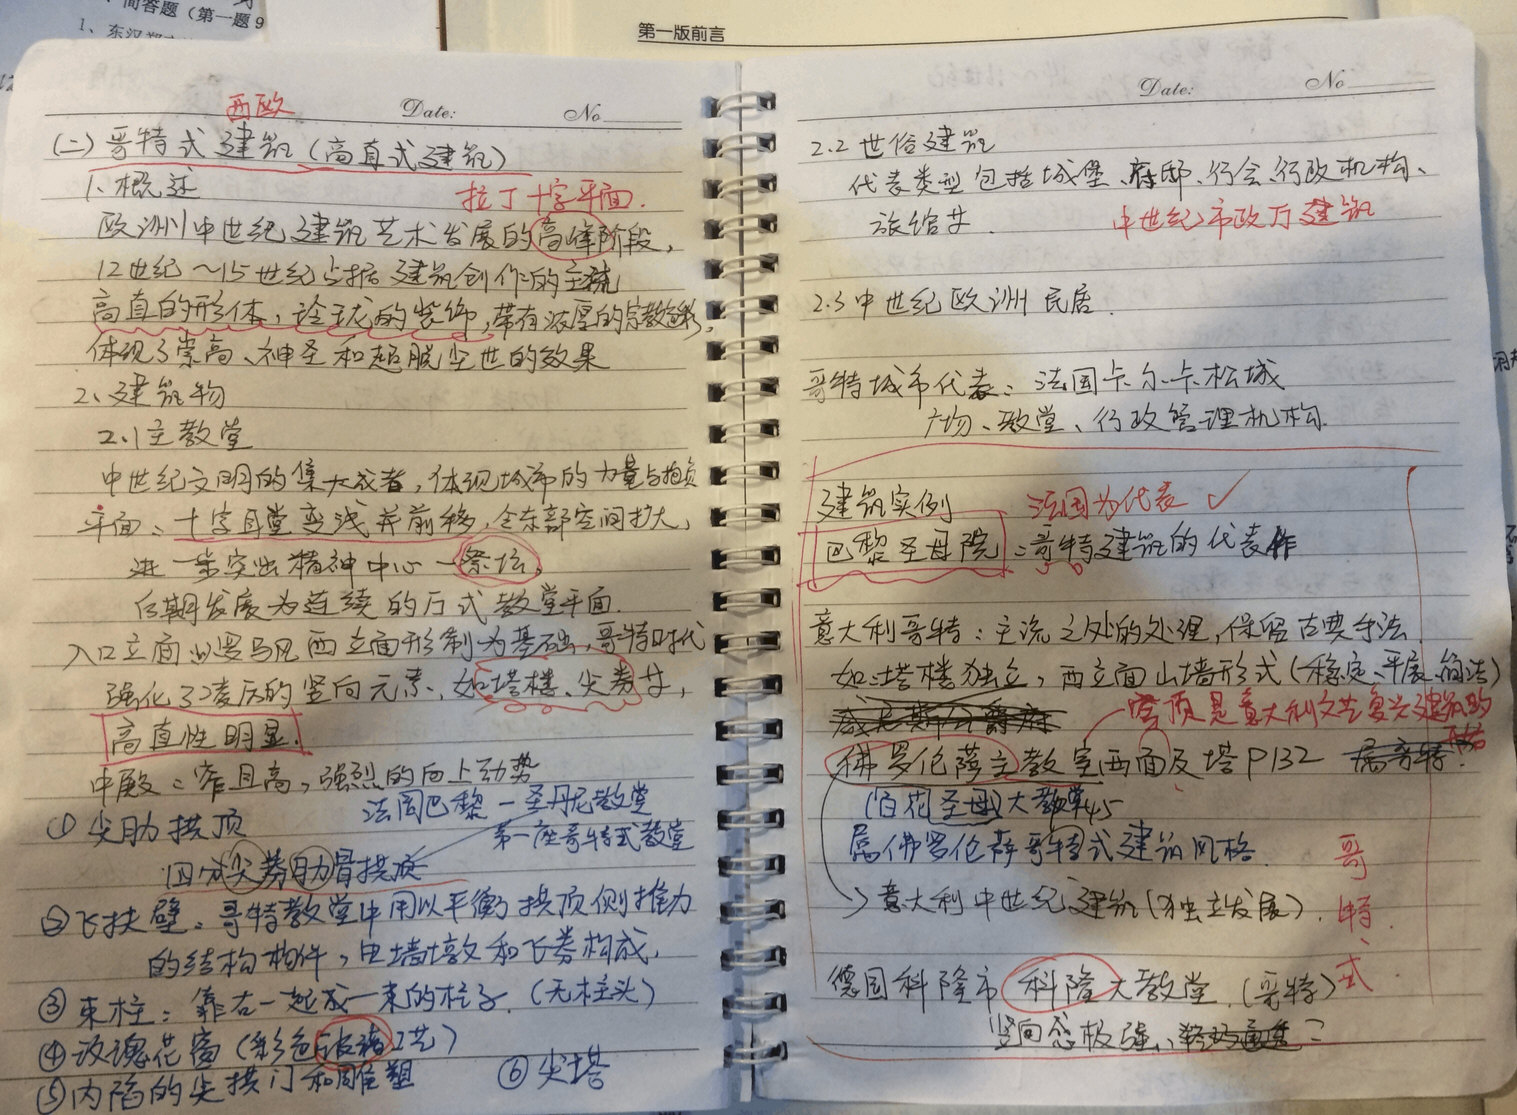 简答题（第一题9
1、东汉
第一版前言
西欧
Date: No
(二)哥特式建筑(高直式建筑)
1、概述
拉丁十字平面.
欧洲中世纪建筑艺术发展的高峰阶段,
12世纪~15世纪占据建筑创作的主流
高直的形体,玲珑的装饰,带有浓厚的宗教色彩,
体现了崇高、神圣和超脱尘世的效果
2、建筑物
2.1主教堂
中世纪文明的集大成者,体现城市的力量与抱负
平面:十字耳堂变浅并前移,令东部空间扩大,
进一步突出精神中心—祭坛,
后期发展为连续的厅式教堂平面.
入口立面以罗马风西立面形制为基础,哥特时代
强化了凌厉的竖向元素,如塔楼、尖券等,
高直性明显.
中殿:窄且高,强烈的向上动势
法国巴黎—圣丹尼教堂
第一座哥特式教堂
①尖肋拱顶
四分尖券肋骨拱顶
②飞扶壁:哥特教堂中用以平衡拱顶侧推力
的结构构件,由墙墩和飞券构成,
③束柱:靠在一起成一束的柱子.(无柱头)
④玫瑰花窗(彩色玻璃工艺)
⑤内陷的尖拱门和雕塑
⑥尖塔
Date: No
2.2世俗建筑
代表类型包括城堡、府邸、行会、行政机构、
旅馆等.
中世纪市政厅建筑
2.3中世纪欧洲民居.
哥特城市代表:法国卡尔卡松城
广场、教堂、行政管理机构.
建筑实例 法国为代表✓
巴黎圣母院:哥特建筑的代表作
意大利哥特:主流之外的处理,保留古典手法.
如:塔楼独立,西立面山墙形式(稳定、平展、简洁)
穹顶是意大利文艺复兴建筑的
佛罗伦萨主教堂西面及塔P132
(百花圣母)大教堂
属佛罗伦萨哥特式建筑风格.
意大利中世纪建筑(独立发展).
哥特式
德国科隆市科隆大教堂.(哥特)
竖向感极强、